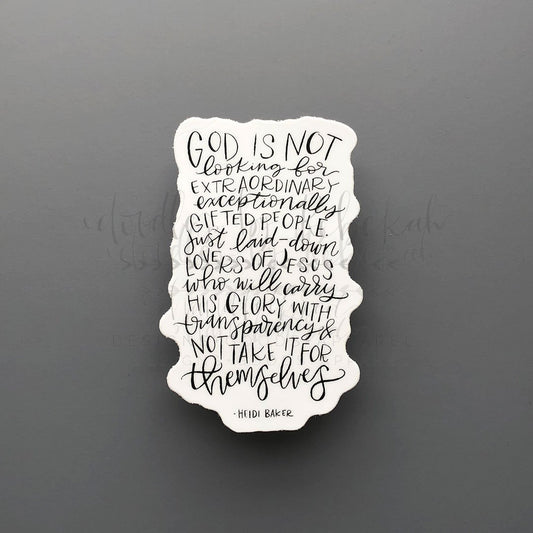 GOD IS NOT
looking for
EXTRAORDINARY
exceptionally
GIFTED PEOPLE.
just laid-down
LOVERS OF JESUS
who will carry
HIS GLORY WITH
transparency &
NOT TAKE IT FOR
themselves
-HEIDI BAKER